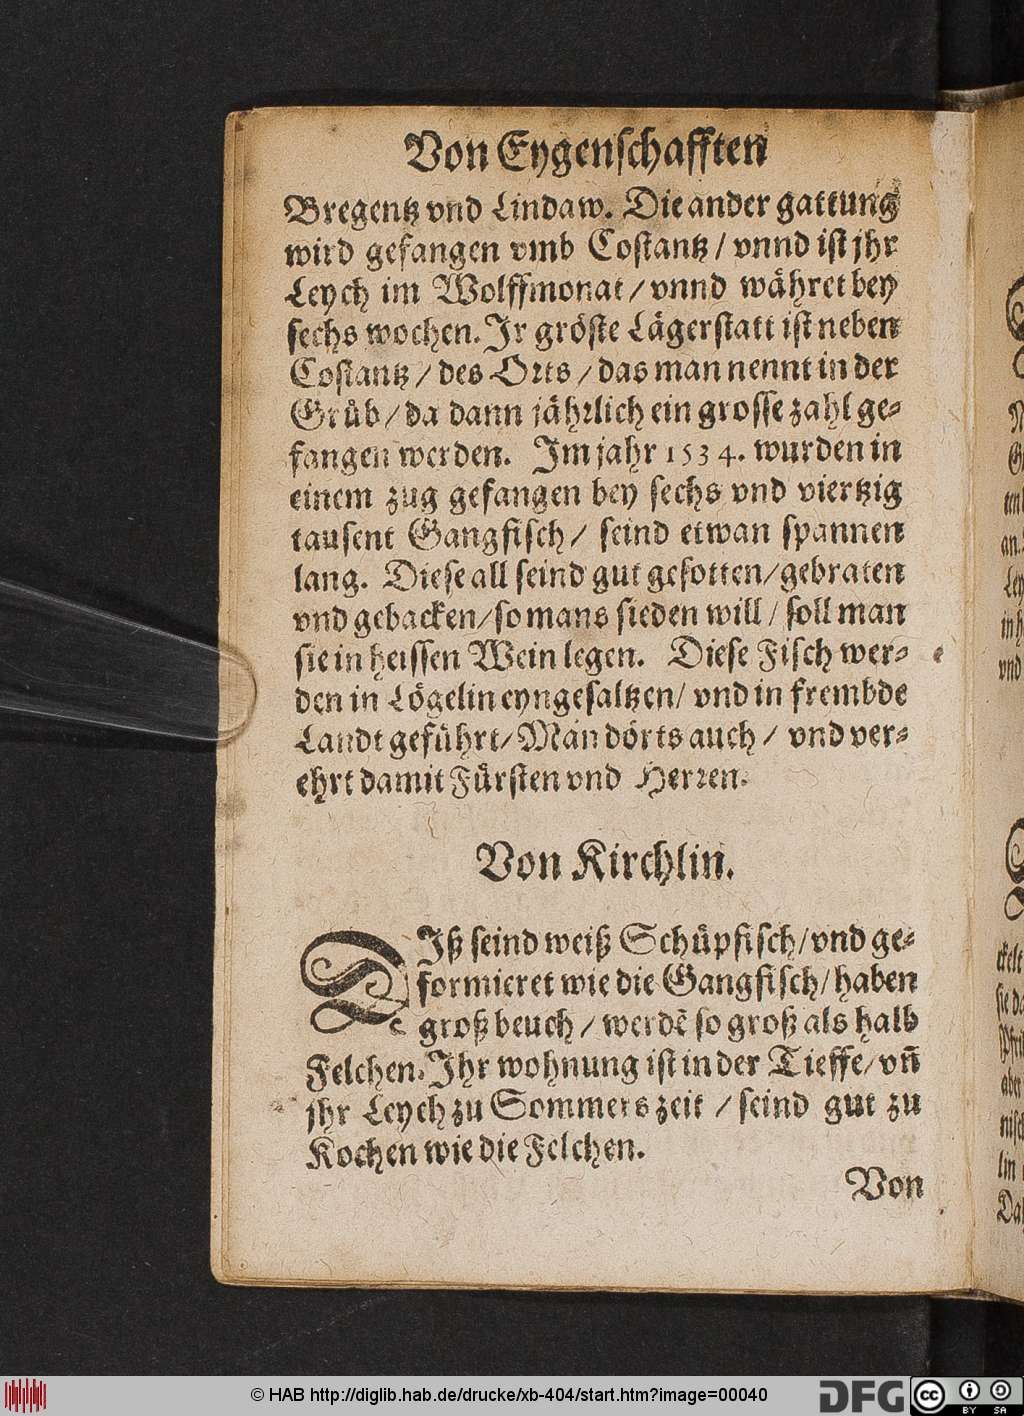 Von Eygenschafften
Bregentz vnd Lindaw. Die ander gattung
wird gefangen vmb Costantz / vnnd ist jhr
Leych im Wolffmonat / vnnd währet bey
sechs wochen. Jr gröste Lägerstatt ist neben
Costantz / des Orts / das man nennt in der
Grůb / da dann jährlich ein grosse zahl ge-
fangen werden. Im jahr 1534. wurden in
einem zug gefangen bey sechs vnd viertzig
tausent Gangfisch / seind etwan spannen
lang. Diese all seind gut gesotten / gebraten
vnd gebacken / so mans sieden will / soll man
sie in heissen Wein legen. Diese Fisch wer-
den in Lögelin eyngesaltzen / vnd in frembde
Landt geführt / Man dörts auch / vnd ver-
ehrt damit Fürsten vnd Herren.
Von Kirchlin.
DIß seind weiß Schüpfisch / vnd ge-
formieret wie die Gangfisch / haben
groß beuch / werdẽ so groß als halb
Felchen. Ihr wohnung ist in der Tieffe / vñ
jhr Leych zu Sommers zeit / seind gut zu
Kochen wie die Felchen.
Von
© HAB http://diglib.hab.de/drucke/xb-404/start.htm?image=00040
DFG
cc BY SA